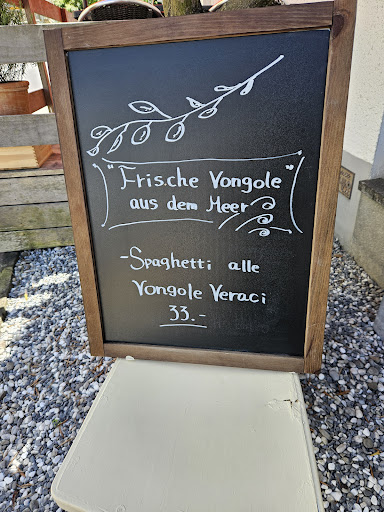 "Frische Vongole"
aus dem Meer
-Spaghetti alle
Vongole Veraci
33.-